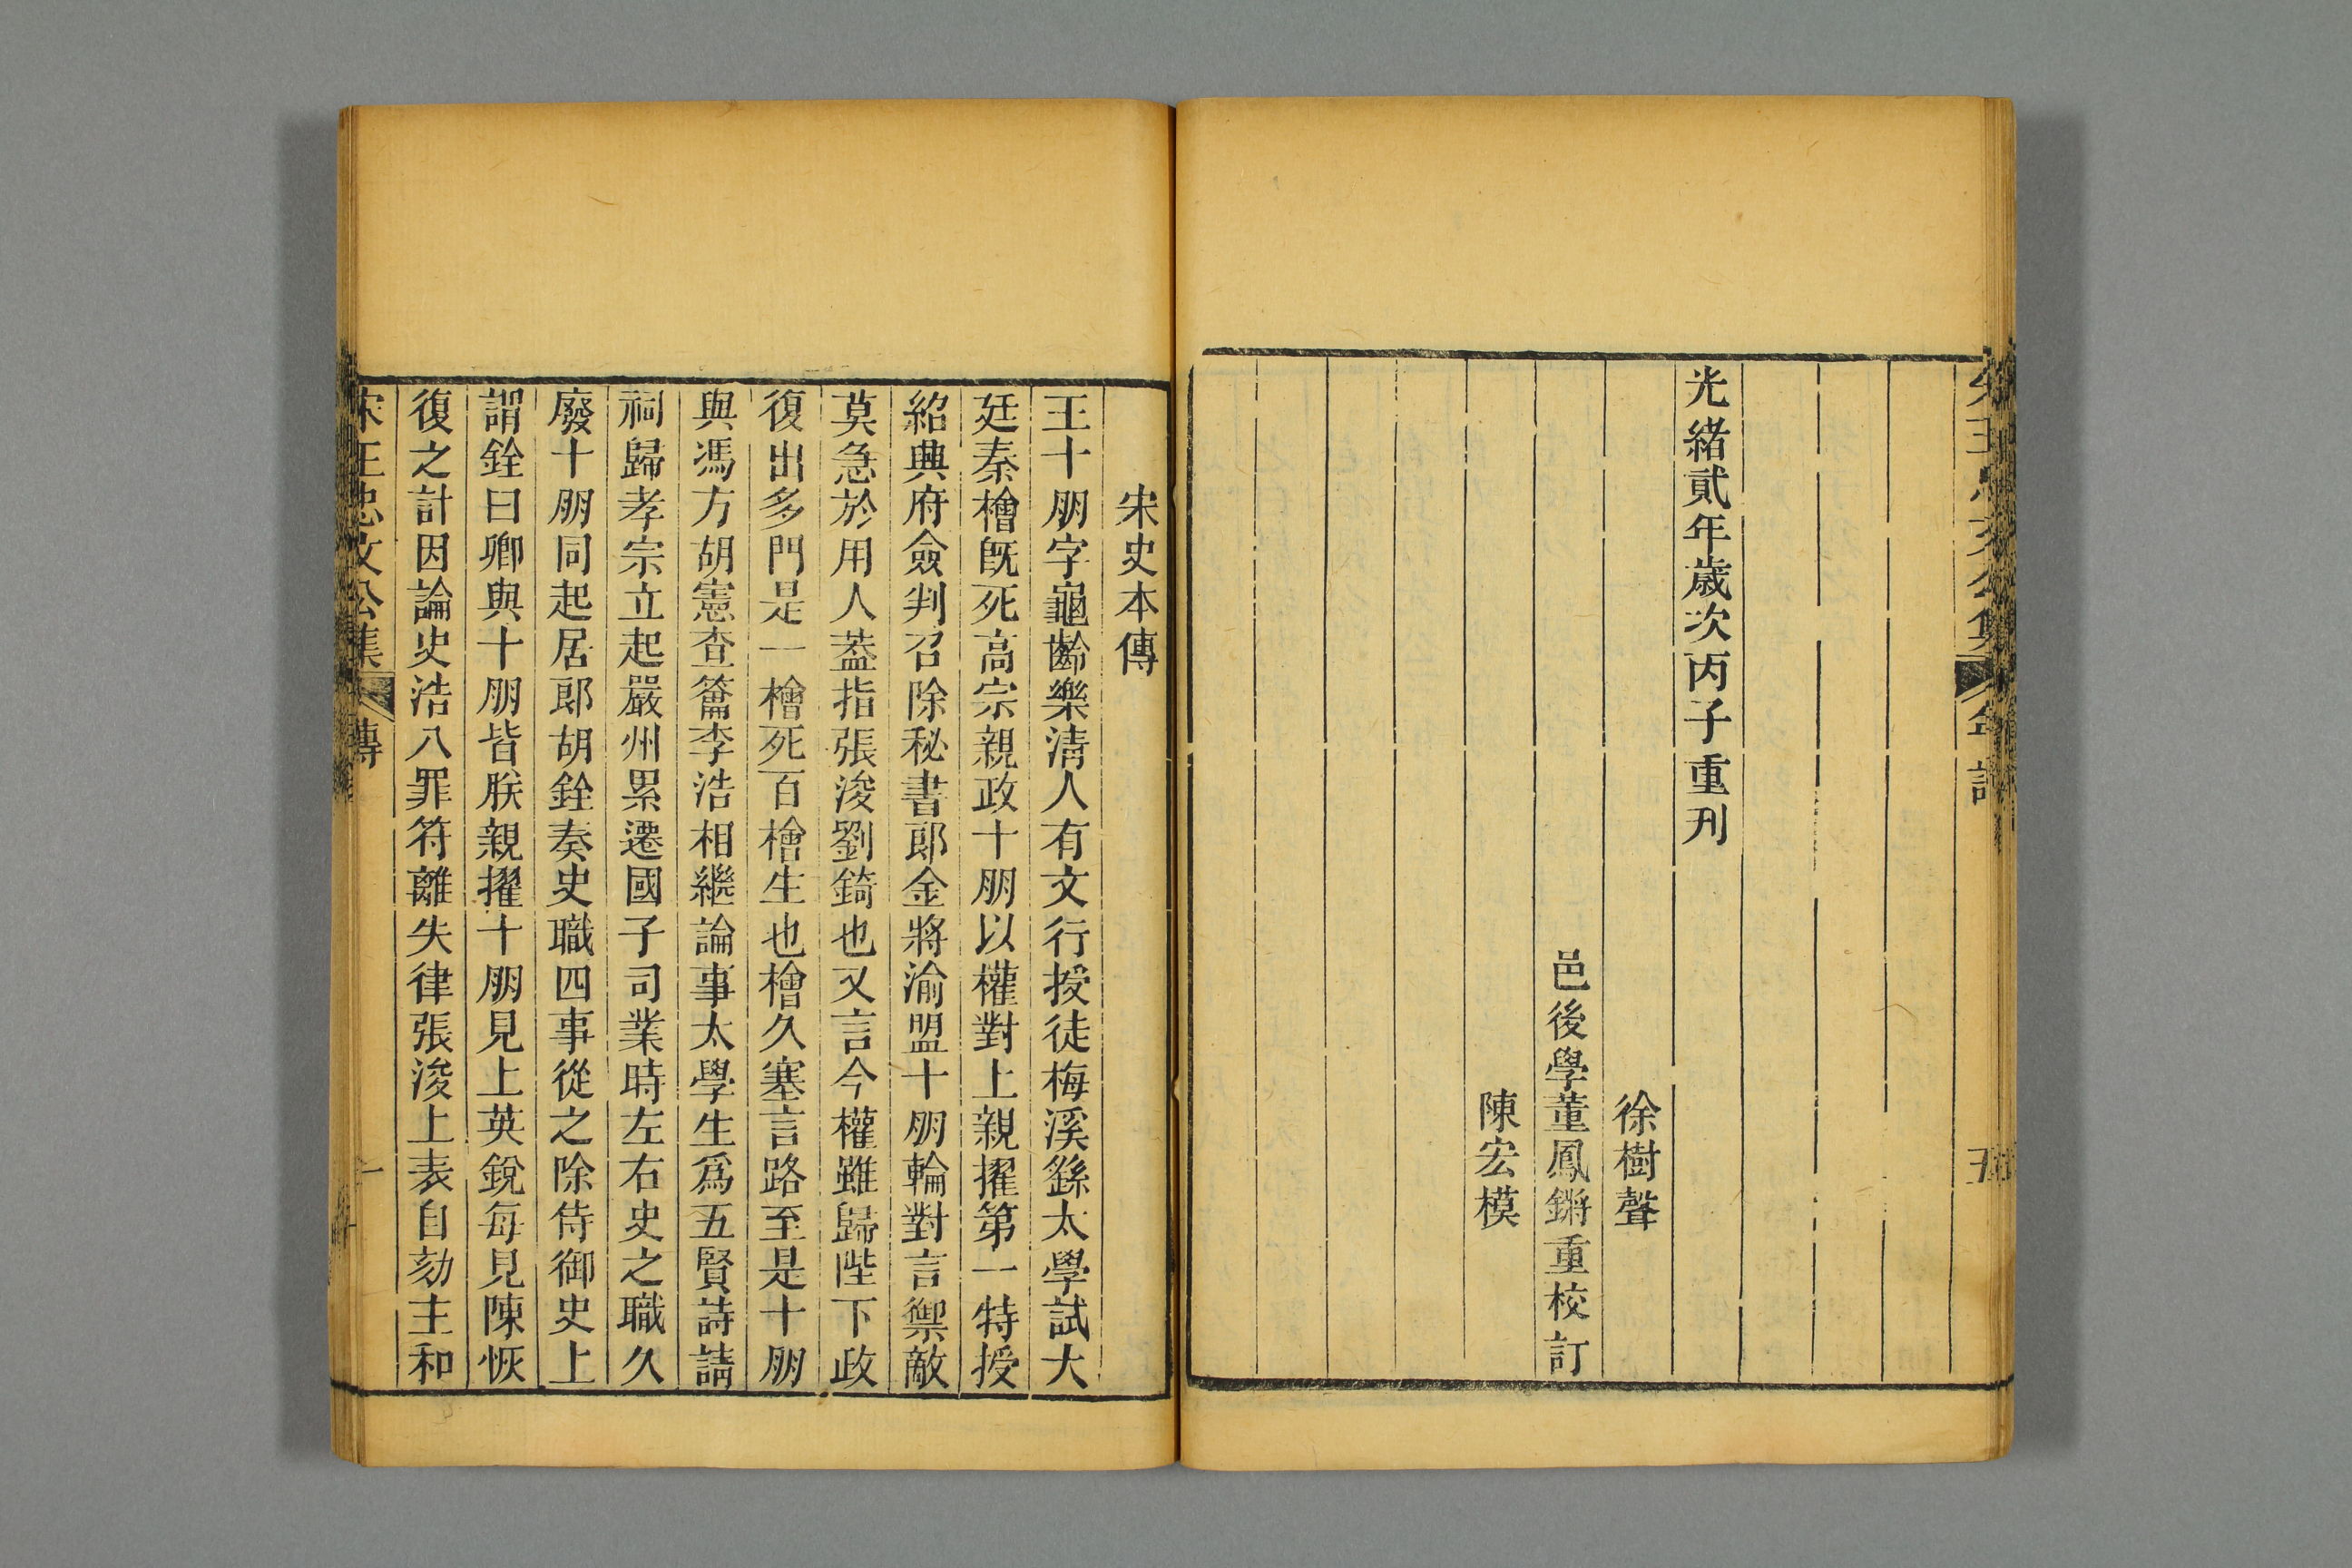 宋王忠文公集 年譜 五
光緒貳年歲次丙子重刋
徐樹聲
邑後學董鳳鏘重校訂
陳宏模
宋史本傳
王十朋字龜齡樂清人有文行授徒梅溪繇太學試大
廷秦檜旣死高宗親政十朋以權對上親擢第一特授
紹興府僉判召除秘書郎金將渝盟十朋輪對言禦敵
莫急於用人葢指張浚劉錡也又言今權雖歸陛下政
復出多門是一檜死百檜生也檜久塞言路至是十朋
與馮方胡憲查籥李浩相繼論事太學生爲五賢詩請
祠歸孝宗立起嚴州累遷國子司業時左右史之職久
廢十朋同起居郎胡銓奏史職四事從之除侍御史上
謂銓曰卿與十朋皆朕親擢十朋見上英銳每見陳恢
復之計因論史浩八罪符離失律張浚上表自劾主和
宋王忠文公集 傳 一